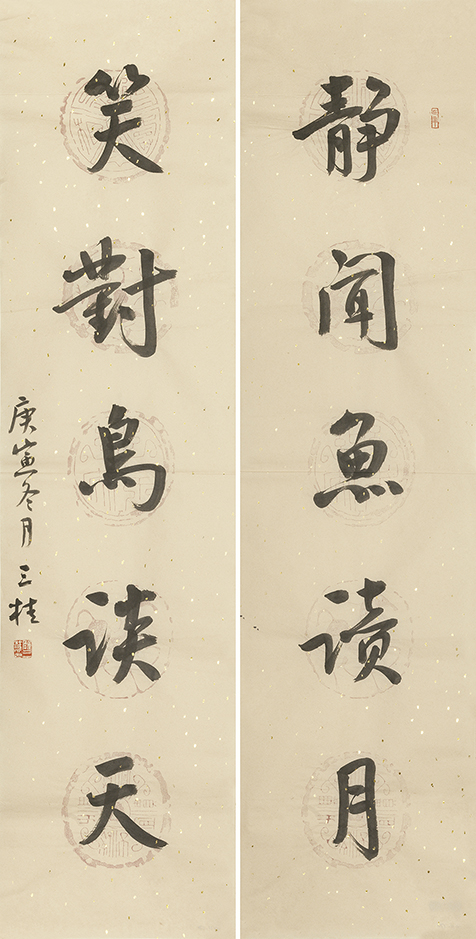 静闻鱼读月
笑對鳥谈天
庚寅冬月 三桂